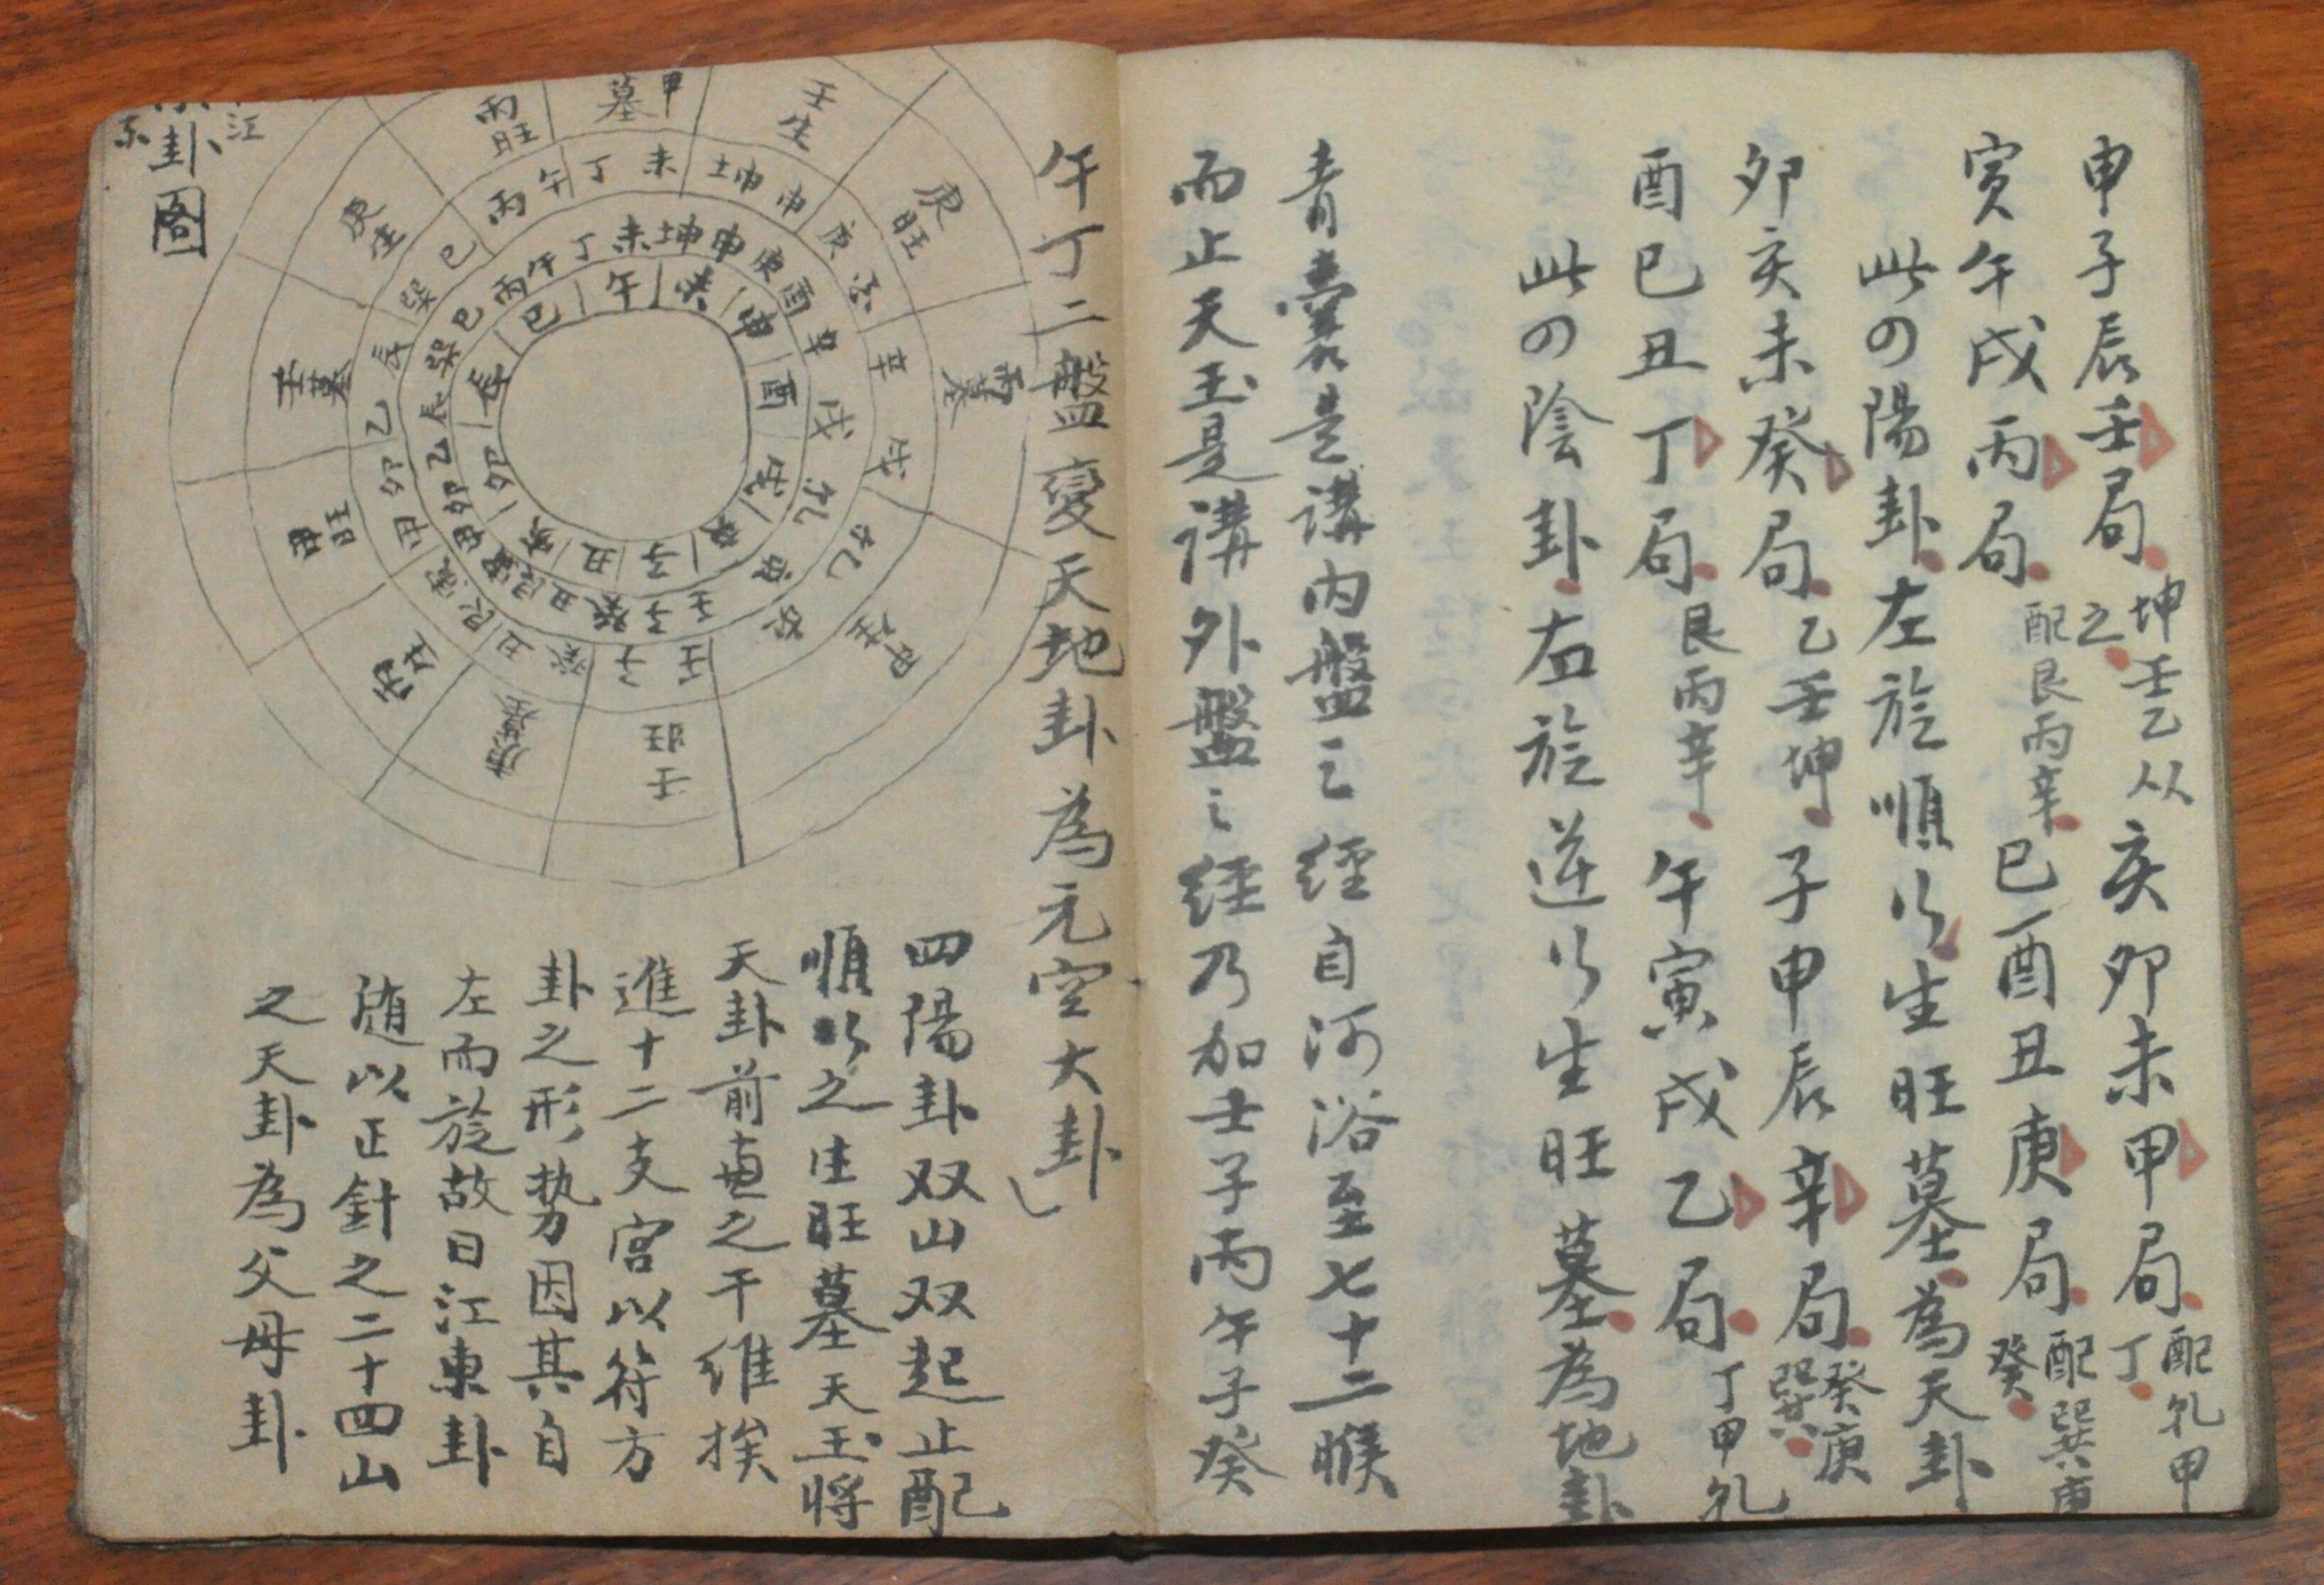 申子辰壬局坤壬乙从之亥卯未甲局配乳甲丁
寅午戌丙局配艮丙辛巳酉丑庚局配巽庚癸
此の陽卦左旋順以生旺墓為天卦
卯亥未癸局乙壬坤子申辰辛局癸庚巽
酉巳丑丁局艮丙辛午寅戌乙局丁甲乳
此の陰卦右旋逆以生旺墓為地卦
青囊是講内盤之經自河洛至七十二候
而止天玉是講外盤之經乃加壬子丙午子癸
午丁二盤變天地卦為元空大卦
江
東
卦
圖
甲墓
壬生
庚旺
丙墓
甲生
壬旺
庚墓
丙生
甲旺
壬墓
庚生
丙旺
丙午丁未坤申庚酉辛戌乳亥壬子癸丑艮寅甲卯乙辰巽巳
丙午丁未坤申庚酉辛戌乳亥壬子癸丑艮寅甲卯乙辰巽巳
午未申酉戌亥子丑寅卯辰巳
四陽卦双山双起止配
順以之生旺墓天玉将
天卦前声之干維挨
進十二支宮以符方
卦之形势因其自
左而旋故曰江東卦
随以正針之二十四山
之天卦為父母卦